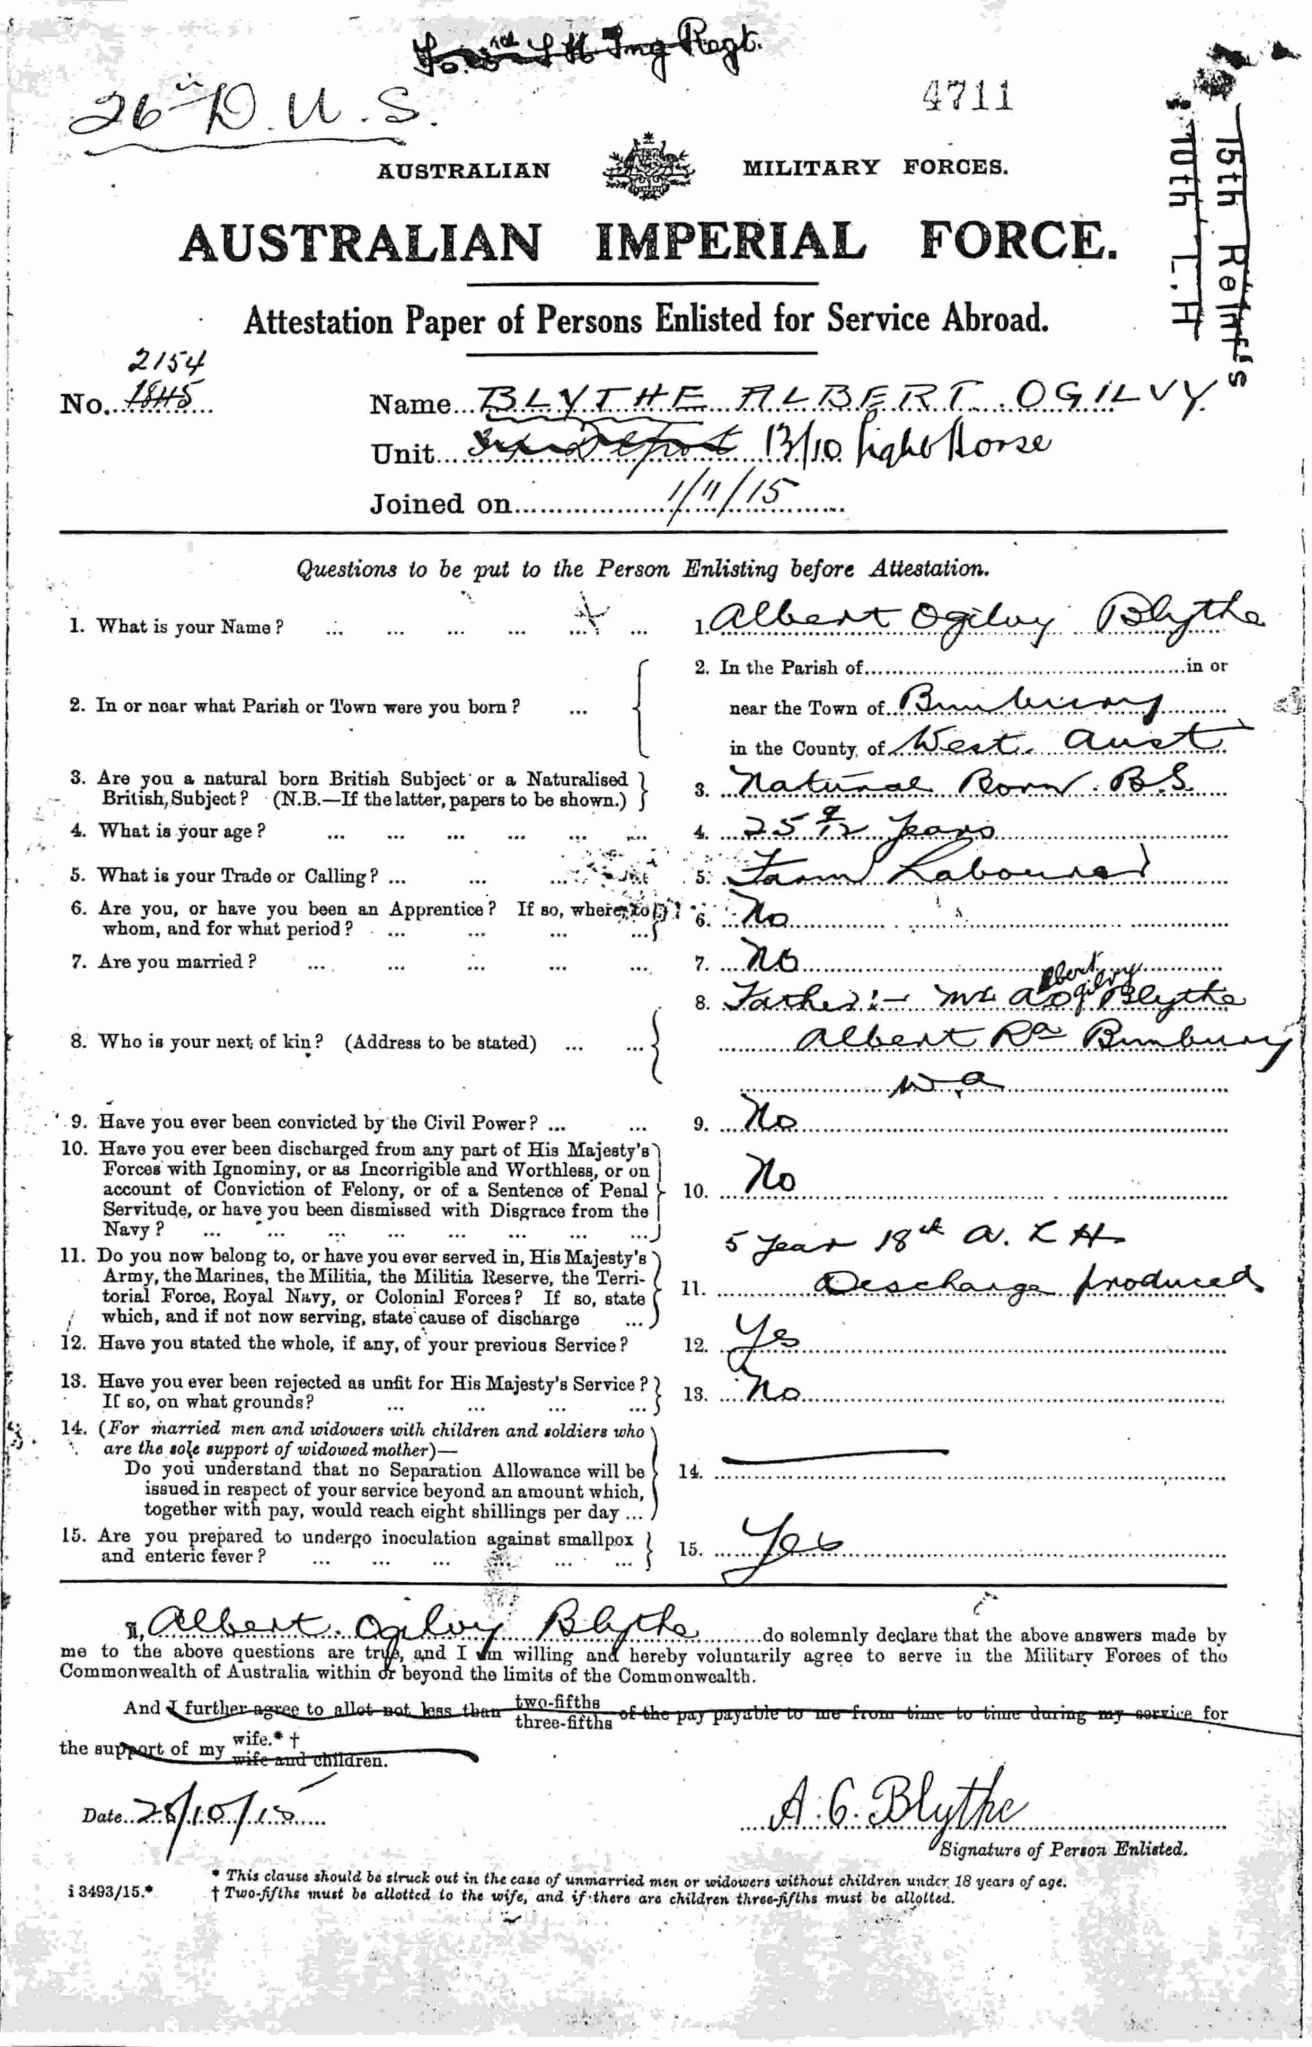 L H Tng Regt.
26th D.U.S.
4711
15th Reinf's
10th L.H
AUSTRALIAN MILITARY FORCES.
AUSTRALIAN IMPERIAL FORCE.
Attestation Paper of Persons Enlisted for Service Abroad.
2154
No. 1845 Name BLYTHE ALBERT OGILVY
Unit Depot 13/10 Light Horse
Joined on 1/11/15
Questions to be put to the Person Enlisting before Attestation.
1. What is your Name? ... ... ... ... ... ... 1. Albert Ogilvy Blythe
2. In or near what Parish or Town were you born? ... 2. In the Parish of in or
near the Town of Bunbury
in the County of West Aust
3. Are you a natural born British Subject or a Naturalised
British Subject? (N.B.—If the latter, papers to be shown.) 3. Natural Born B.S.
4. What is your age? ... ... ... ... ... ... 4. 25 9/12 years
5. What is your Trade or Calling? ... ... ... ... 5. Farm Labourer
6. Are you, or have you been an Apprentice? If so, where, to
whom, and for what period? ... ... ... ... 6. No
7. Are you married? ... ... ... ... ... 7. No
8. Who is your next of kin? (Address to be stated) ... ... 8. Father:- Mr Albert Ogilvy Blythe
Albert Rd Bunbury
W.A
9. Have you ever been convicted by the Civil Power? ... ... 9. No
10. Have you ever been discharged from any part of His Majesty's
Forces with Ignominy, or as Incorrigible and Worthless, or on
account of Conviction of Felony, or of a Sentence of Penal
Servitude, or have you been dismissed with Disgrace from the
Navy? ... ... ... ... ... ... ... ... 10. No
11. Do you now belong to, or have you ever served in, His Majesty's
Army, the Marines, the Militia, the Militia Reserve, the Terri-
torial Force, Royal Navy, or Colonial Forces? If so, state
which, and if not now serving, state cause of discharge ... 11. 5 year 18th A. L H
Discharge produced
12. Have you stated the whole, if any, of your previous Service? 12. Yes
13. Have you ever been rejected as unfit for His Majesty's Service?
If so, on what grounds? ... ... ... ... 13. No
14. (For married men and widowers with children and soldiers who
are the sole support of widowed mother)—
Do you understand that no Separation Allowance will be
issued in respect of your service beyond an amount which,
together with pay, would reach eight shillings per day ... 14.
15. Are you prepared to undergo inoculation against smallpox
and enteric fever? ... ... ... ... ... ... 15. Yes
I, Albert Ogilvy Blythe do solemnly declare that the above answers made by
me to the above questions are true, and I am willing and hereby voluntarily agree to serve in the Military Forces of the
Commonwealth of Australia within or beyond the limits of the Commonwealth.
And I further agree to allot not less than two-fifths three-fifths of the pay payable to me from time to time during my service for
the support of my wife.* † wife and children.
Date 28/10/15 A. O. Blythe
Signature of Person Enlisted.
* This clause should be struck out in the case of unmarried men or widowers without children under 18 years of age.
i 3493/15.* † Two-fifths must be allotted to the wife, and if there are children three-fifths must be allotted.